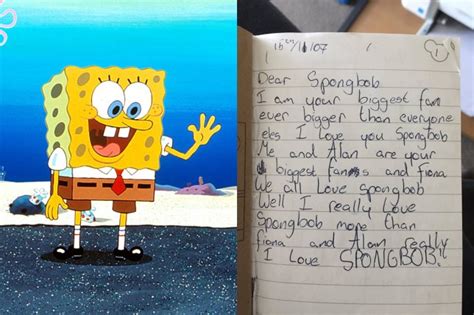 Dear Spongbob
I am your biggest fan
ever bigger than everyone
eles I Love you Spongbob
Me and Alan are your
biggest fans and Fiona
We all Love spongbob
Well I really Love
Spongbob more than
fiona and Alan really
I Love SPONGBOB!!